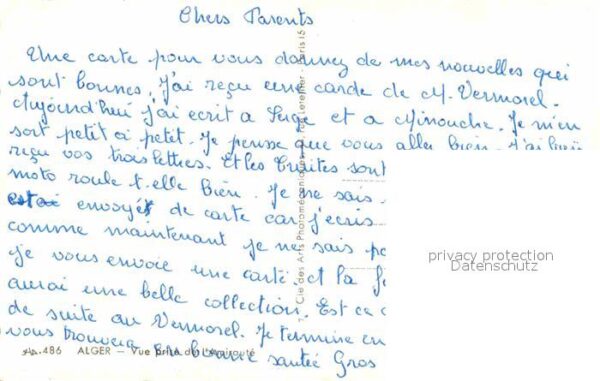 Chers Parents
Une carte pour vous donnez de mes nouvelles qui
sont bonnes. J'ai reçu une carde de M. Vermorel.
Aujourd'hui j'ai ecrit a Serge et a Minouche. Je m'en
sort petit a petit. Je pense que vous aller bien. J'ai bien
reçu vos trois lettres. Et les Truites sont
moto roule t-elle bien. Je ne sais
envoyé de carte car j'ecris
comme maintenant je ne sais
je vous envoie une carte. et la
aurai une belle collection. Est ce
de suite au Vermorel. Je termine en
vous trouvera en bonne santée Gros
privacy protection
Datenschutz
486 ALGER — Vue prise de l'Amirauté
Cie des Arts Photomécaniques